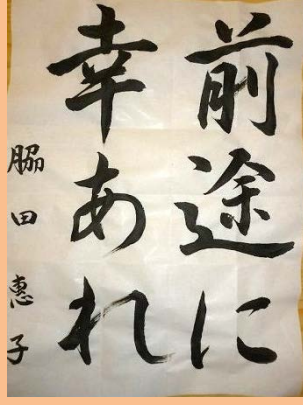 前途に
幸あれ
脇田恵子